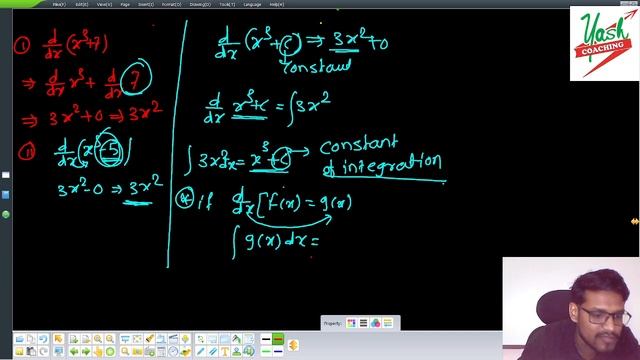 File(F) Edit(E) View(V) Page(P) Insert(I) Format(O) Drawing(D) Tool(T) Language Help(H)
① d/dx (x³+7)
⇒ d/dx x³ + d/dx 7
⇒ 3x²+0 ⇒ 3x²
② d/dx (x³-5)
3x²-0 ⇒ 3x²
d/dx (x³+c) ⇒ 3x²+0
constant
d/dx x³+c = ∫3x²
∫3x²dx = x³+c → constant
of integration
* if d/dx [f(x) = g(x)
∫ g(x) dx =
Yash
COACHING
Property: